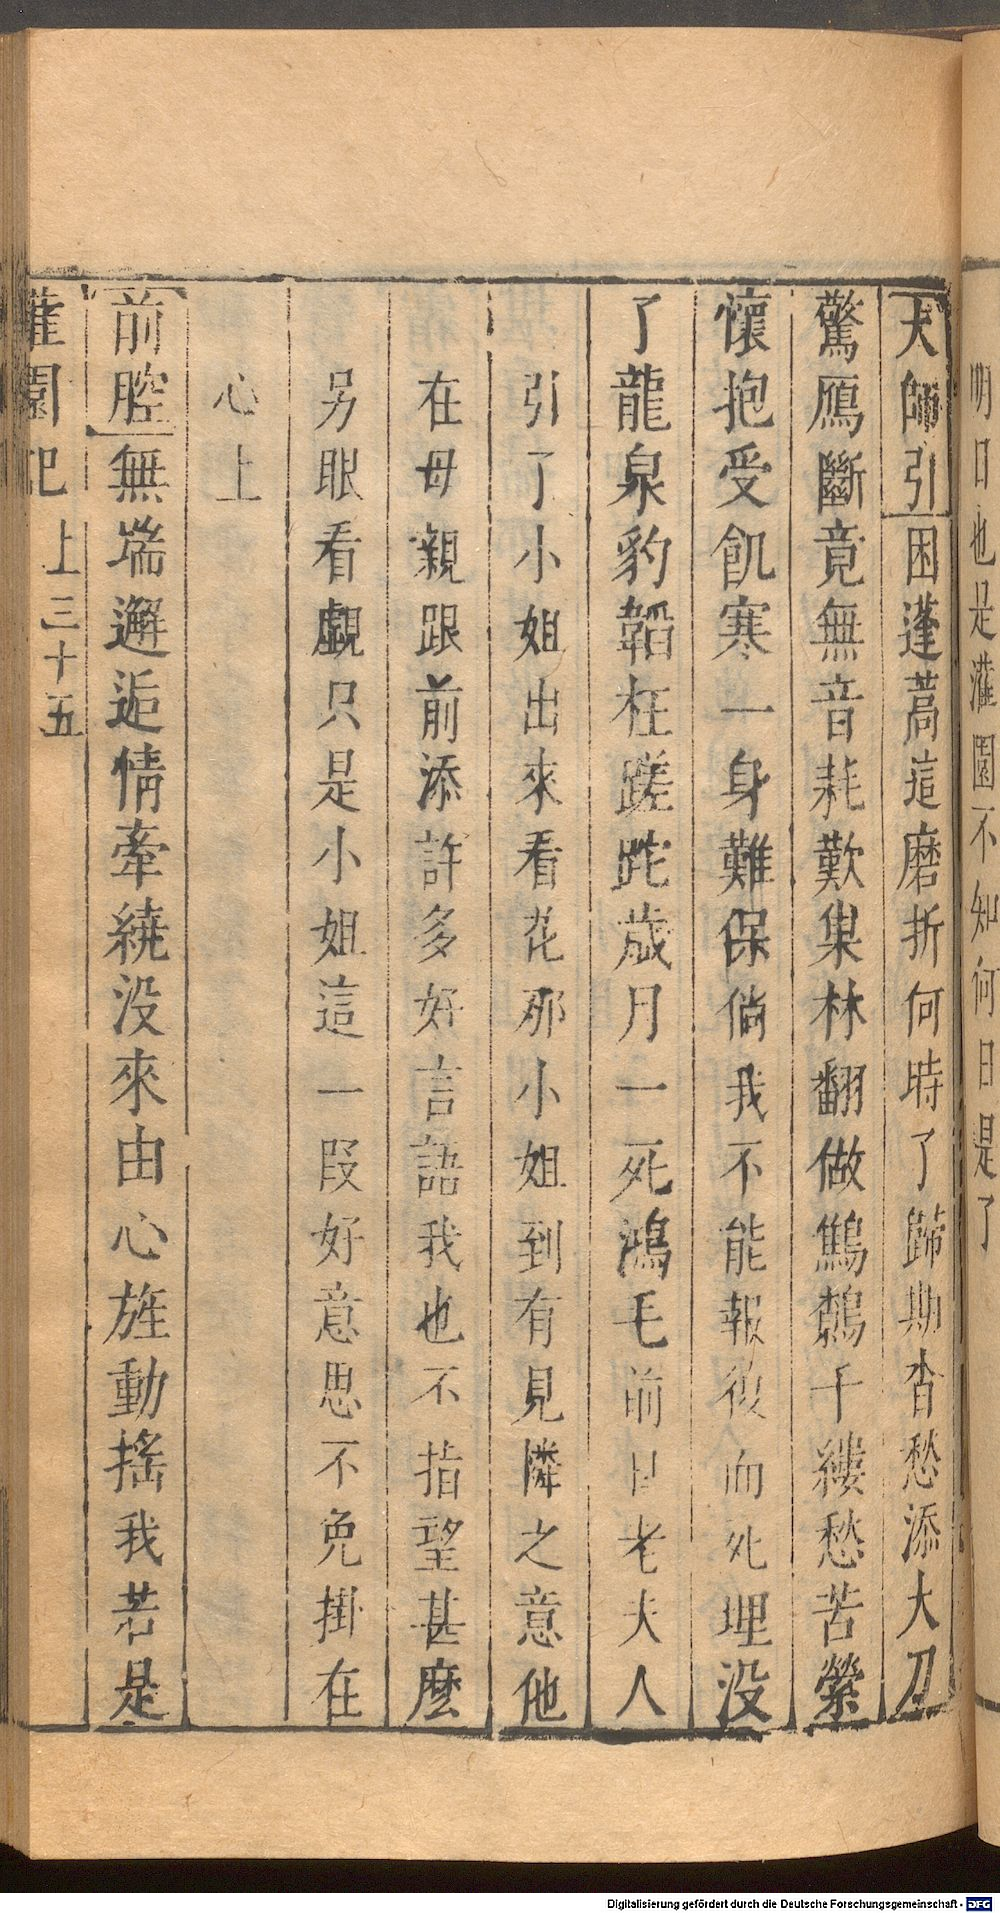 明日也是灌園不知何日是了
太師引困蓬蒿這磨折何時了歸期杳愁添大刀
驚鴈斷竟無音耗歎巢林翻做鷦鷯千縷愁苦縈
懷抱受飢寒一身難保倘我不能報復而死埋没
了龍泉豹韜枉蹉跎歲月一死鴻毛前日老夫人
引了小姐出來看花那小姐到有見憐之意他
在母親跟前添許多好言語我也不指望甚麼
另眼看覷只是小姐這一段好意思不免掛在
心上
前腔無端邂逅情牽繞没來由心旌動搖我若是
灌園記 上三十五
Digitalisierung gefördert durch die Deutsche Forschungsgemeinschaft - DFG